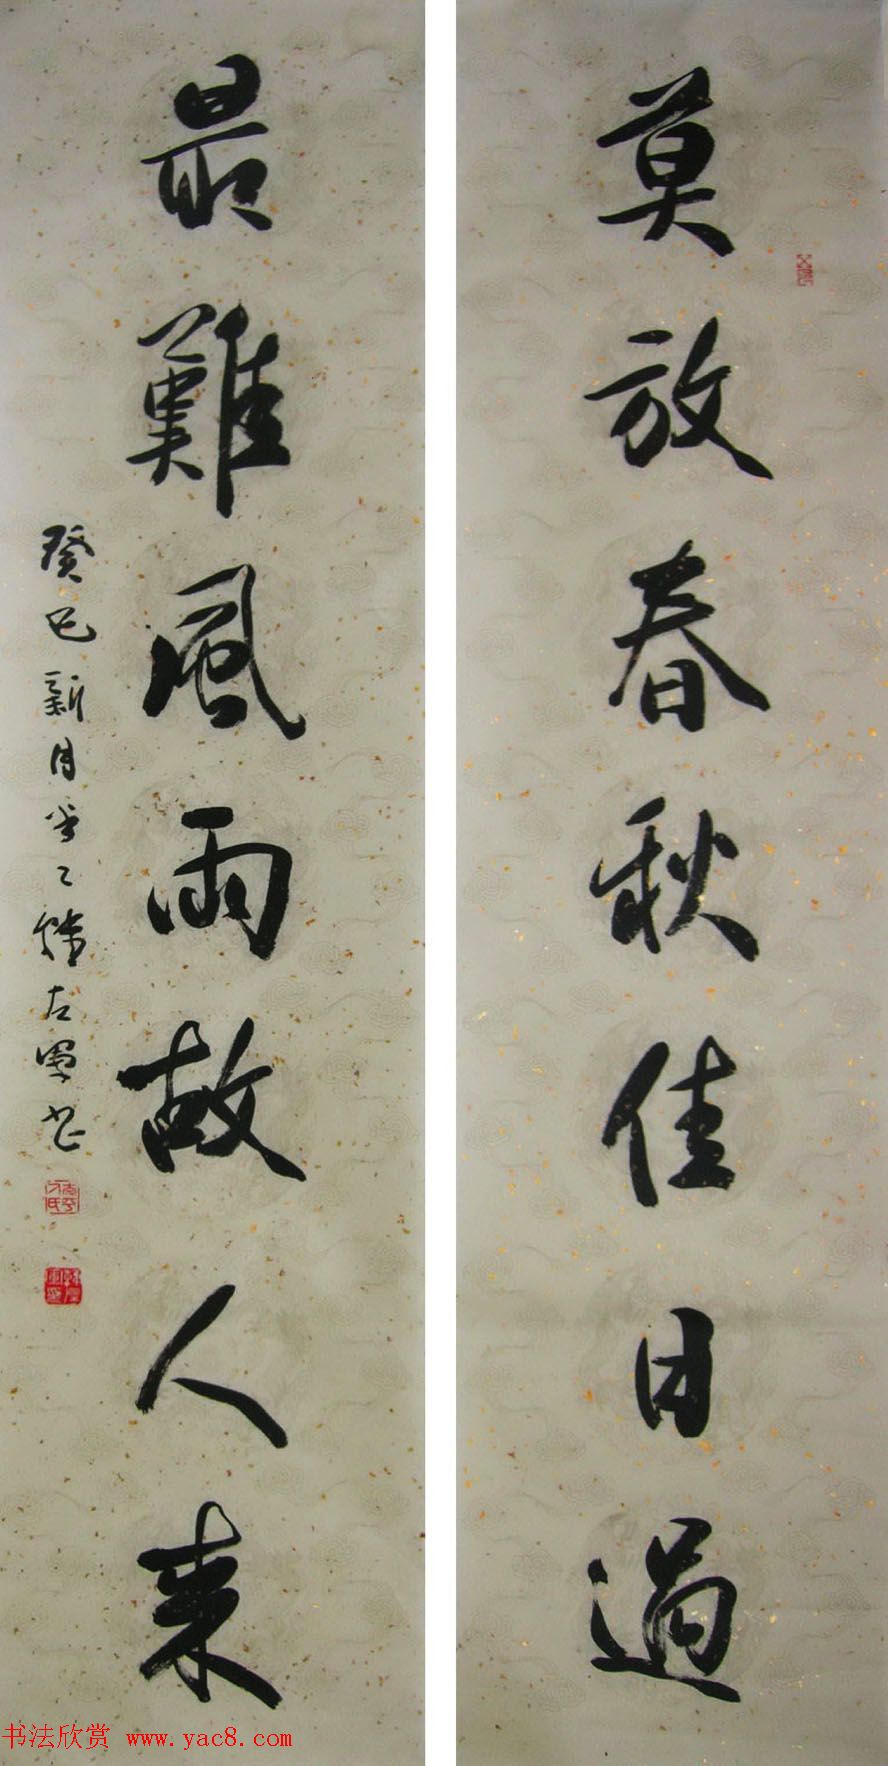 莫放春秋佳日過
最難風雨故人來
癸巳新月
书法欣赏 www.yac8.com